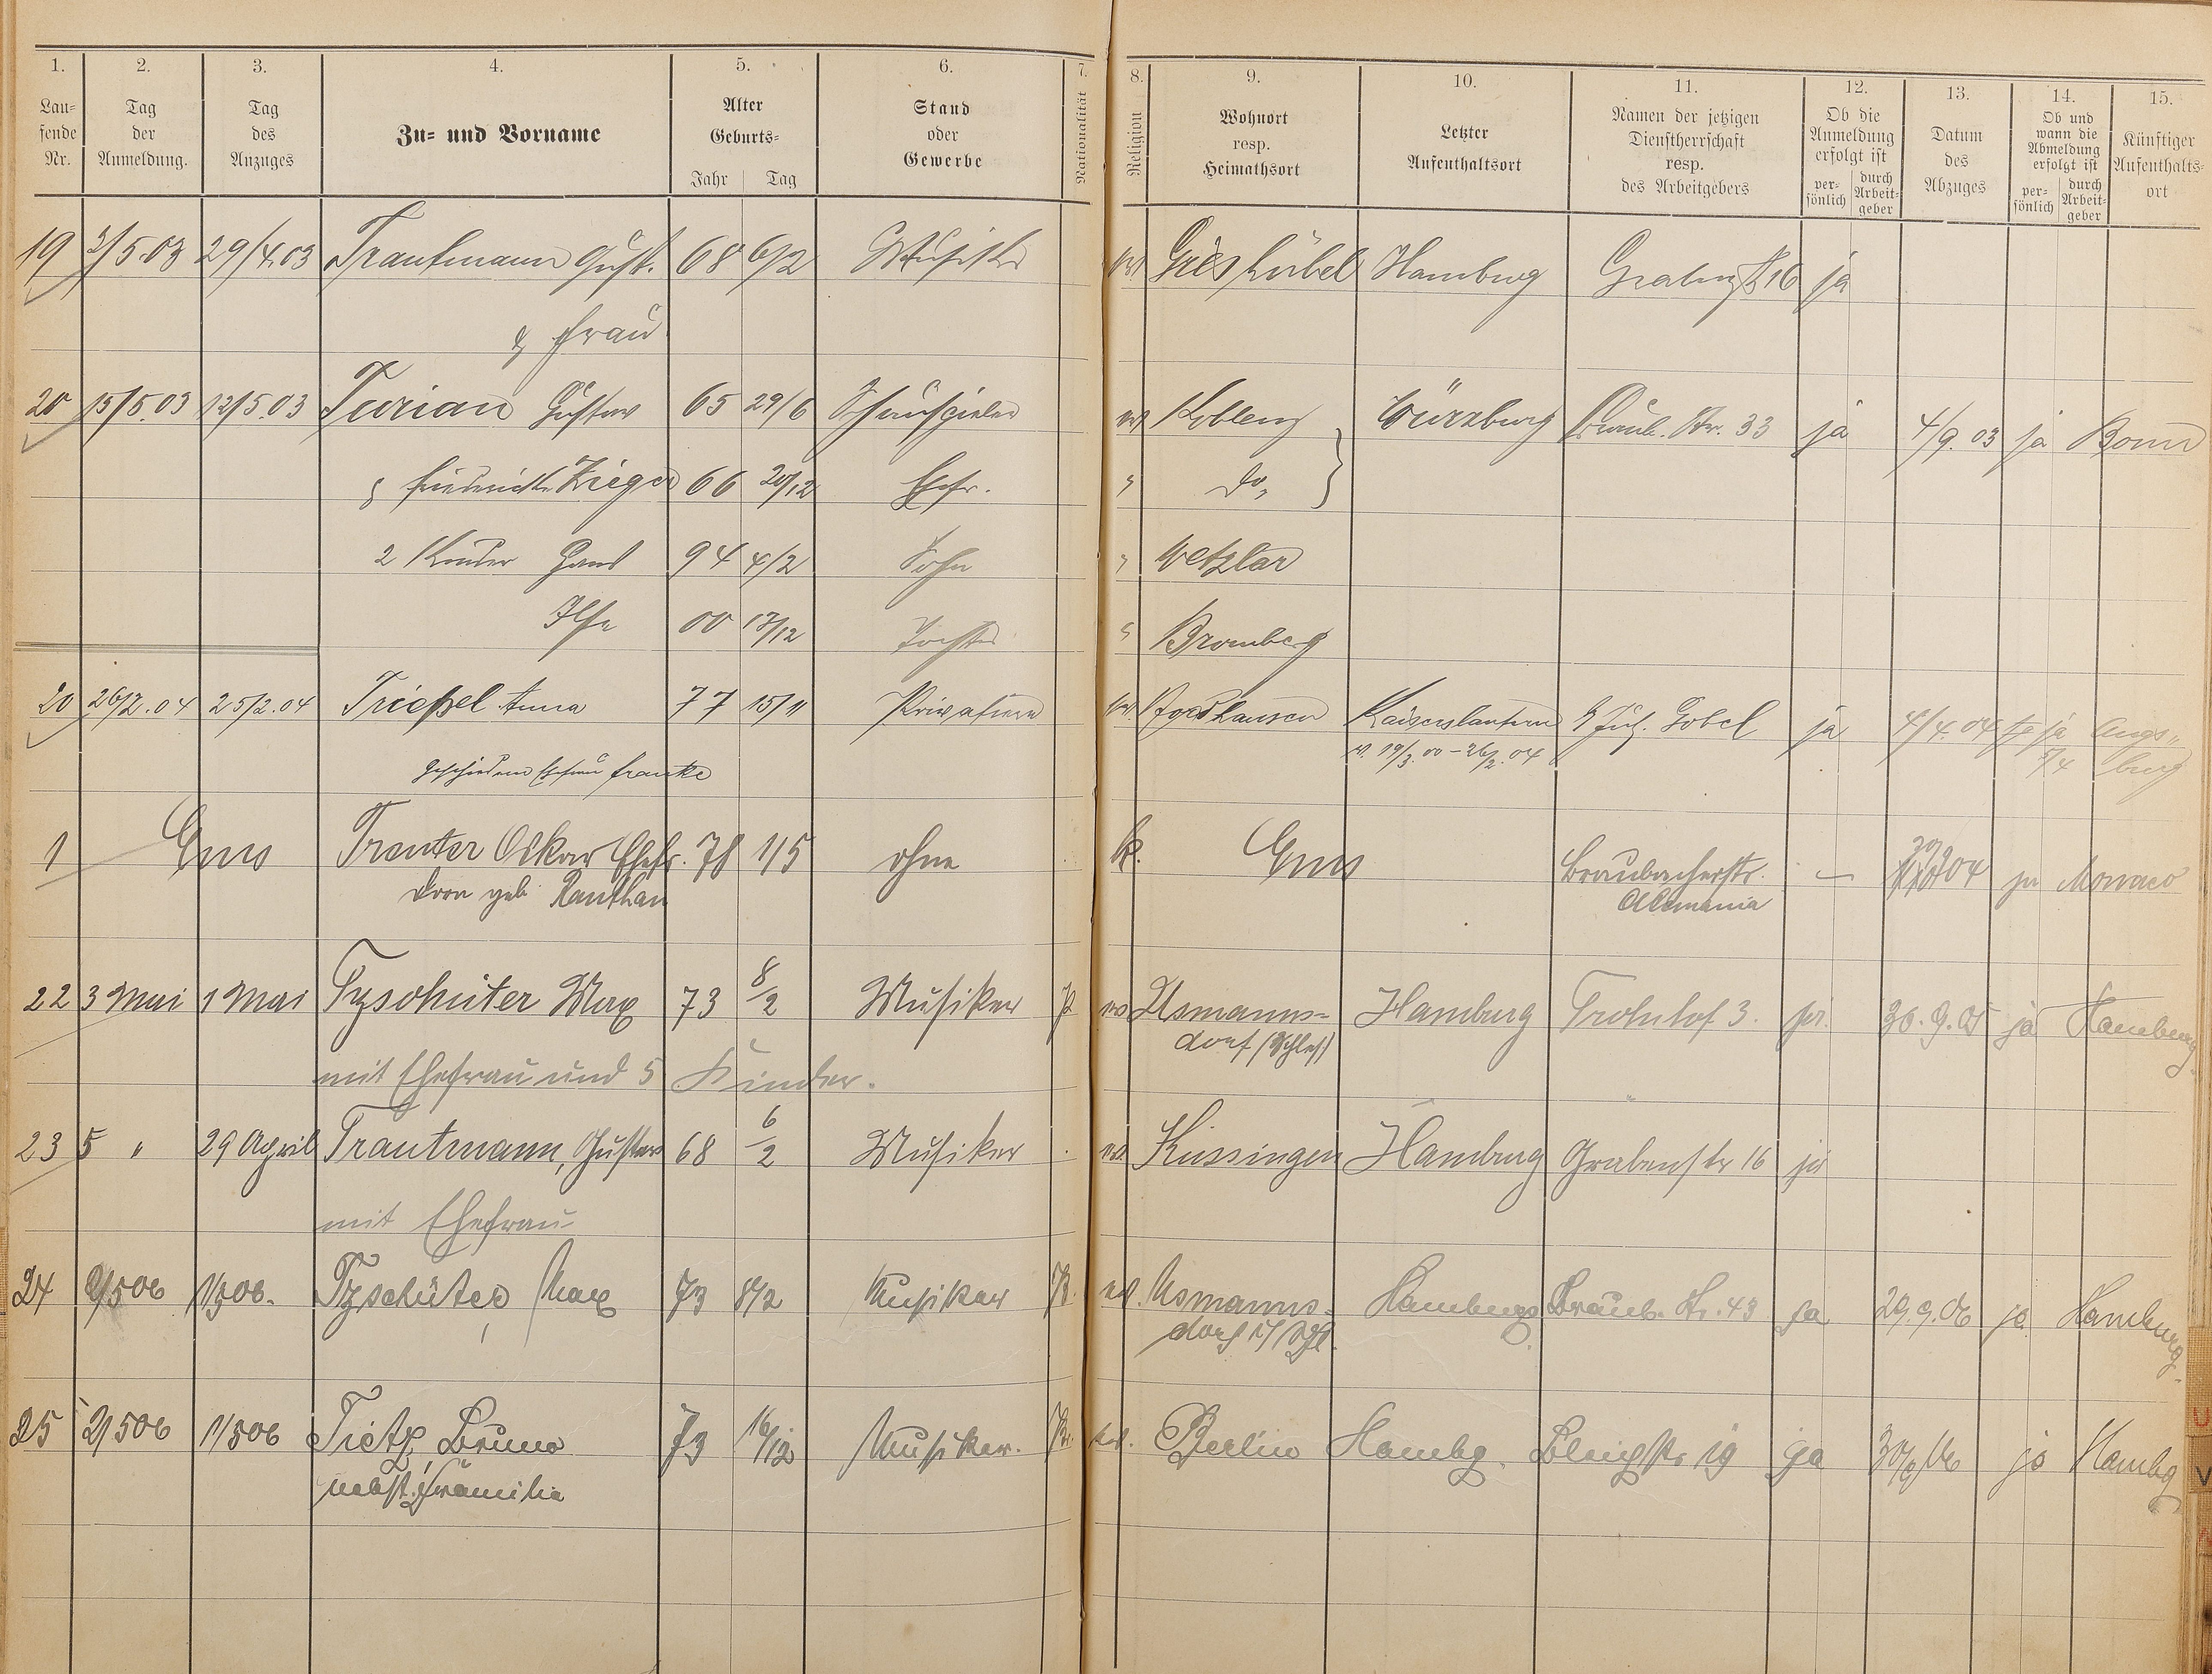 1. 2. 3. 4. 5. 6. 7. 8. 9. 10. 11. 12. 13. 14. 15.
Lau-
fende
Nr.
Tag
der
Anmeldung.
Tag
des
Anzuges
Zu- und Vorname
Alter
Geburts-
Jahr Tag
Stand
oder
Gewerbe
Nationalität
Religion
Wohnort
resp.
Heimathsort
Letzter
Aufenthaltsort
Namen der jetzigen
Dienstherrschaft
resp.
des Arbeitgebers
Ob die
Anmeldung
erfolgt ist
per-
sönlich
durch
Arbeit-
geber
Datum
des
Abzuges
Ob und
wann die
Abmeldung
erfolgt ist
per-
sönlich
durch
Arbeit-
geber
Künftiger
Aufenthalts-
ort
19 2/5.03 29/4.03 Trautmann Gust. 68 6/2 Musiker ev Hamburg Grabenstr 16 ja
& Frau
20 15/5.03 12/5.03 Turian Gustav 65 29/6 Schauspieler ev Koblenz Würzburg Braub. Str. 33 ja 4/9.03 ja Bonn
Friedericke Zieger 66 20/12 Ehefr. " do,
2 Kinder Hans 94 4/2 Sohn " Wetzlar
Ilse 00 17/12 Tochter " Bromberg
20 26/2.04 25/2.04 Triepel Anna 77 15/11 Privatiere ev. Kaiserslautern Göbel ja 4/4.04 ja Augs-
v. 19/3.00 - 26/2.04 7/4 burg
geschiedene Ehefrau Franke
1 Ems Trenter Oskar Ehefr. 78 1/5 ohne k. Ems Braubacherstr. — 04 ja Monaco
Dora geb. Ranthan Alemania
22 3 Mai 1 Mai Tzschüter Max 73 8/2 Musiker P ev Usmanns- Hamburg 3. ja. 30.9.05 ja Hamburg.
dorf (Schles)
mit Ehefrau und 5 Kinder.
23 5 " 29 April Trautmann, Gustav 68 6/2 Musiker . ev. Kissingen Hamburg Grabenstr 16 ja
mit Ehefrau
24 2/506 1/506. Tzschüter, Max 73 8/2 Musiker Pr. ev. Usmanns- Hamburg Braub. Str. 43 ja 29.9.06 ja Hamburg.
dorf
25 2/506 1/506 Tietz, Bruno 73 16/12 Musiker. Pr. ev. Berlin Hambg. Bleichstr 19 ja 30/9 06 ja Hambg.
nebst Framilie